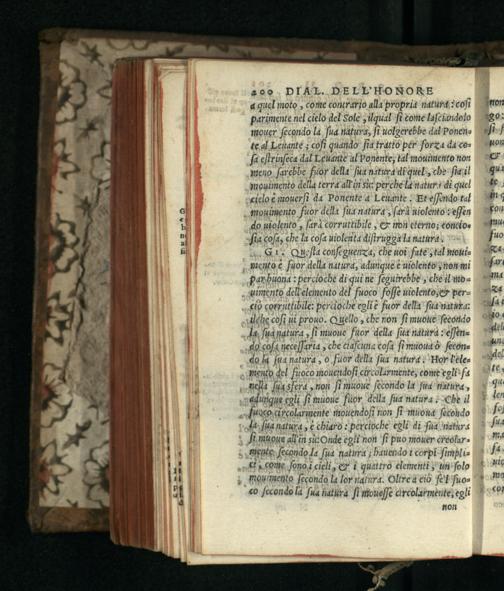 200 DIAL. DELL'HONORE
a quel moto, come contrario alla propria natura: così
parimente nel cielo del Sole, ilqual sì come lasciandolo
mouer secondo la sua natura, si uolgerebbe dal Ponen-
te al Leuante; così quando sia tratto per forza da co-
sa estrinseca dal Leuante al Ponente, tal mouimento non
meno sarebbe fuor della sua natura di quel, che sia il
mouimento della terra all'in sù: perche la natura di quel
cielo è mouersi da Ponente a Leuante. Et essendo tal
mouimento fuor della sua natura, sarà uiolento: essen
do uiolento, sarà corruttibile, & non eterno; concio-
sia cosa, che la cosa uiolenta distrugga la natura.
GI. Questa conseguenza, che uoi fate, tal moui-
mento è fuor della natura, adunque è uiolento, non mi
par buona: percioche di qui ne seguirebbe, che il mo-
uimento dell'elemento del fuoco fosse uiolento, & per-
ciò corruttibile: percioche egli è fuor della sua natura:
ilche così ui prouo. Quello, che non si muoue secondo
la sua natura, si muoue fuor della sua natura: essen-
do cosa necessaria, che ciascuna cosa si muoua ò secon-
do la sua natura, o fuor della sua natura. Hor l'ele-
mento del fuoco mouendosi circolarmente, come egli fa
nella sua sfera, non si muoue secondo la sua natura,
adunque egli si muoue fuor della sua natura. Che il
fuoco circolarmente mouendosi non si muoua secondo
la sua natura, è chiaro: percioche egli di sua natura
si muoue all'in sù: Onde egli non si puo mouer circolar-
mente secondo la sua natura; hauendo i corpi simpli-
ci, come sono i cieli, & i quattro elementi, un solo
mouimento secondo la lor natura. Oltre a ciò se'l fuo-
co secondo la sua natura si mouesse circolarmente, egli
non